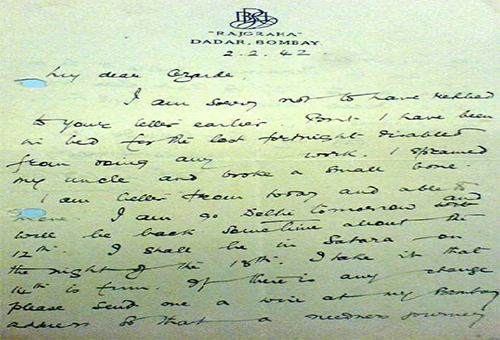 BRA
"RAJGRAHA"
DADAR, BOMBAY.
2.2.42
My dear
I am sorry not to have replied
to your letter earlier. But I have been
in bed for the last fortnight disabled
from doing any work. I sprained
my uncle and broke a small bone.
I am better from today and able to
move. I am go Delhi tomorrow and
will be back sometime about the
12th. I shall be in Satara on
the night of the 13th. I take it that
14th is firm. If there is any change
please send me a wire at my Bombay
address so that a needless journey